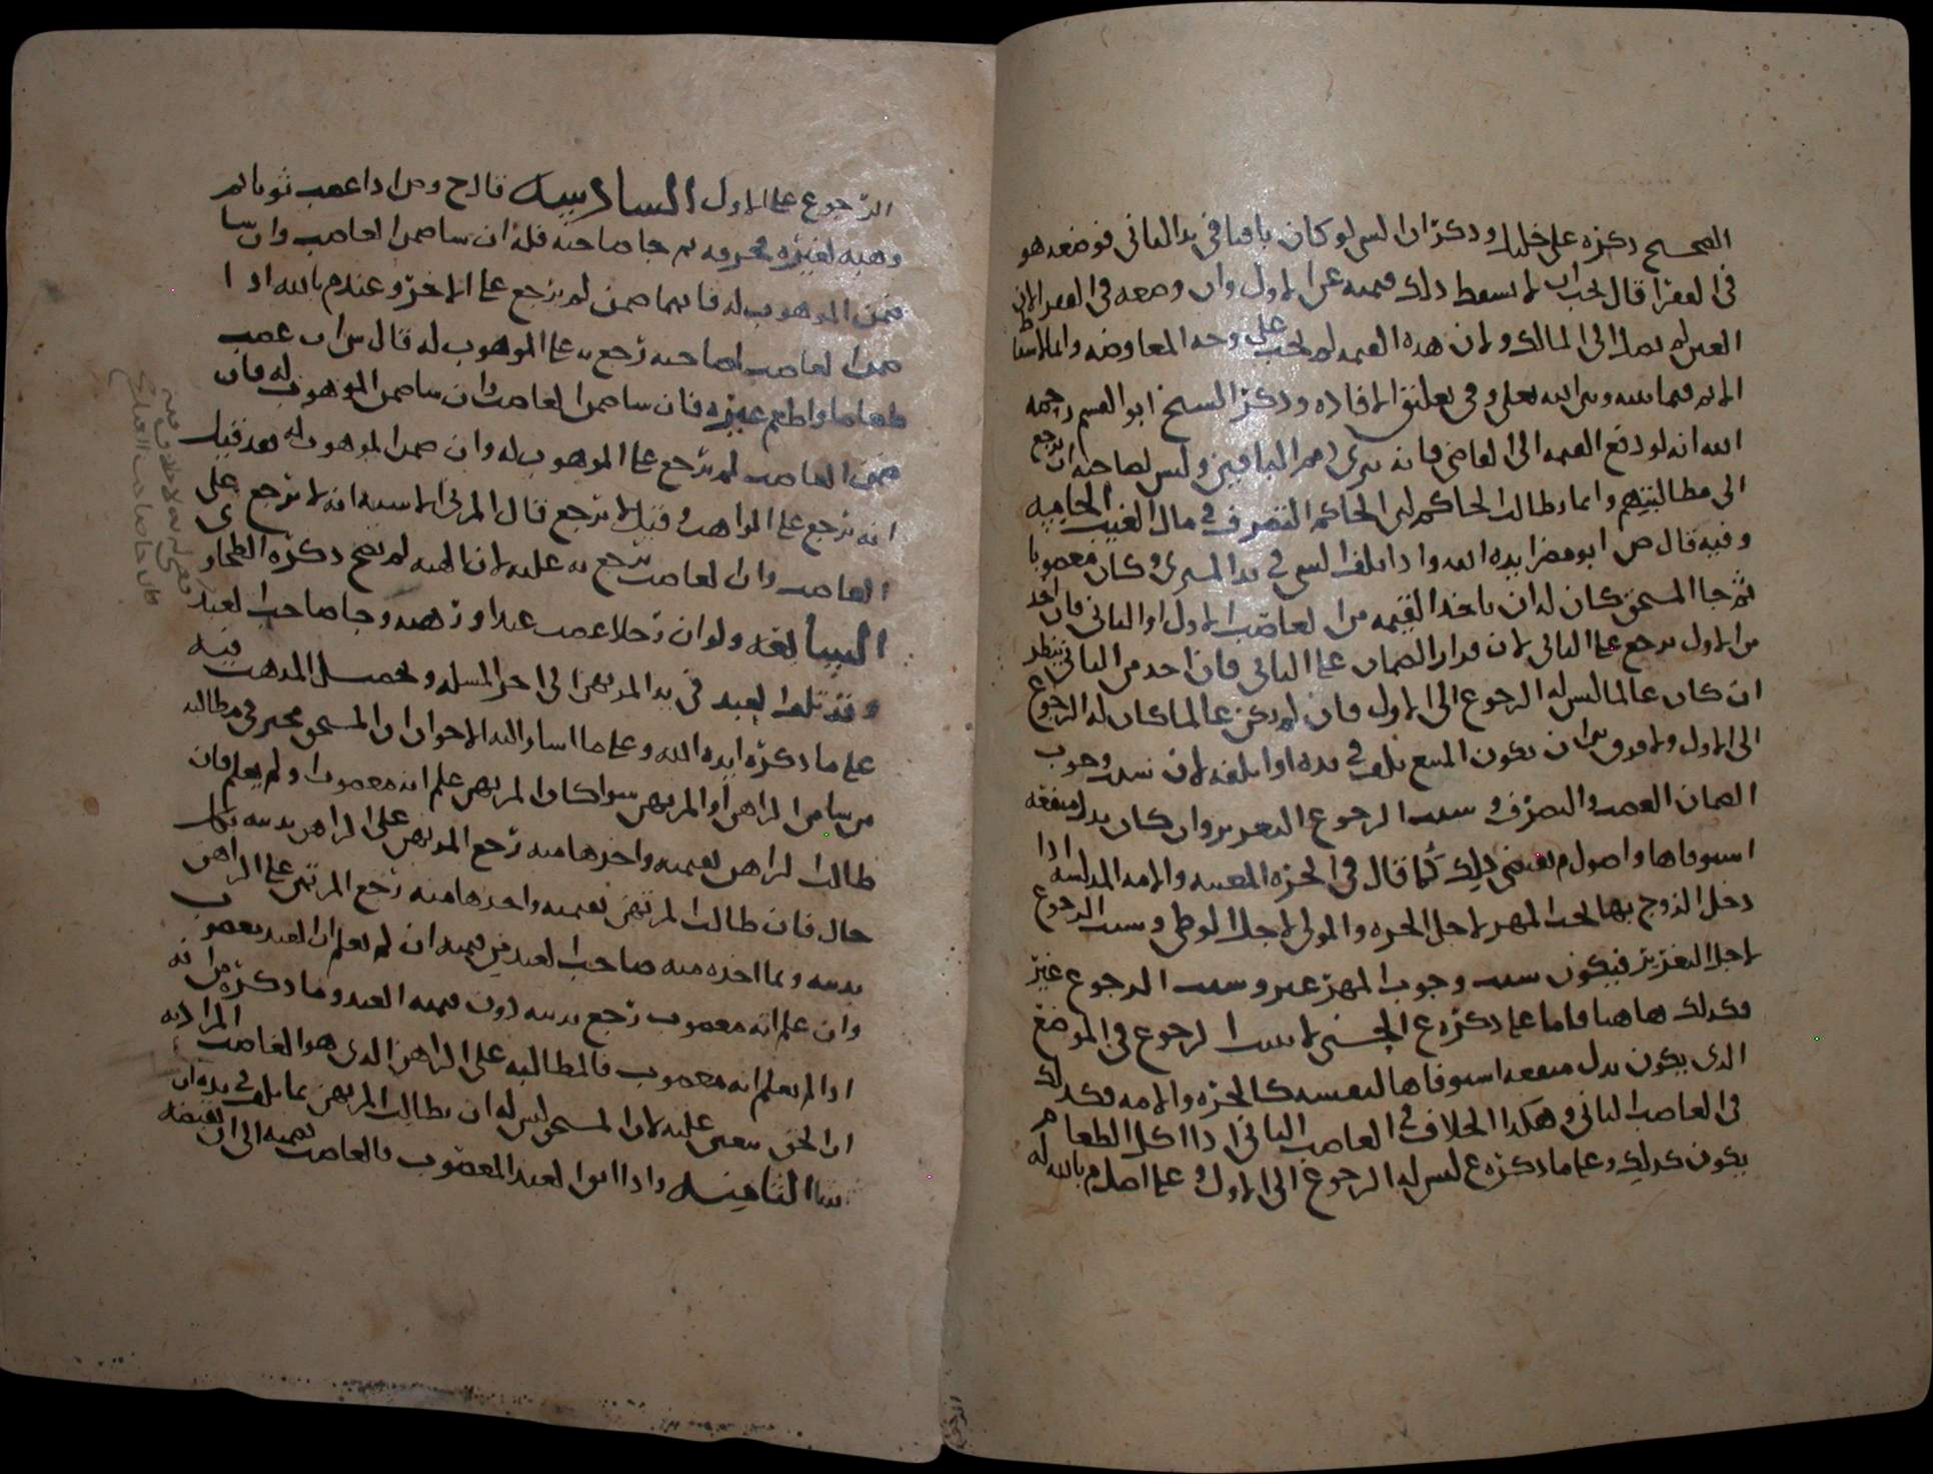 الصحيح ذكره على خليل وذكر ان الشي لو كان باقيا في يد الثاني فوضعه هو
في الفقرا قال يجب ان لا يسقط ذلك قيمته عن الاول وان وضعه في الفقرا لان
العين لم تصل الى المالك ولان هذه القيمه لم تجب على وجه المعاوضه وانما
الاثم فيما بينه وبين الله تعلى وفي تعليق الافاده وذكر الشيخ ابو القسم رحمه
الله انه لو دفع القيمه الى القاضي فانه يبرى ذمم الباقين وليس لصاحبه ان يرجع
الى مطالبتهم وانما يطالب الحاكم لان الحاكم التصرف في مال الغيب
وفيه قال ص ابو مضر ايده الله واذا تلف الشي في يد المشتري وكان مغصوبا
ثم جا المستحق كان له ان ياخذ القيمه من الغاصب الاول او الثاني فان اخذ
من الاول يرجع على الثاني لان قرار الضمان على الثاني فان اخذ من الثاني ينظر
ان كان عالما ليس له الرجوع الى الاول فان لم يكن عالما كان له الرجوع
الى الاول ولا فرق بين ان يكون المبيع تلف في يده او اتلفه لان سبب وجوب
الضمان الغصب والتصرف وسبب الرجوع التغرير وان كان بدل منفعه
استوفاها واصول م تقتضي ذلك كما قال في الحره المعيبه والامه المدلسه اذا
دخل الزوج بها يجب المهر لاجل الحره والمولى لاجل الوطي وسبب الرجوع
لاجل التغرير فيكون سبب وجوب المهر غير وسبب الرجوع غير
فكذلك هاهنا فاما على ما ذكره ع الحسني لا يثبت الرجوع في الموضع
الذي يكون بدل منفعه استوفاها لنفسه كالحره والامه فكذلك
في الغاصب الثاني وهكذا الخلاف في الغاصب الثاني اذا اكل الطعام
يكون كذلك وعلى ما ذكره ع ليس له الرجوع الى الاول وعلى اصل م بالله له
الرجوع على الاول السادسه قال ح وص اذا غصب ثوبا ثم
وهبه لغيره فحرقه ثم جا صاحبه فله ان شا ضمن الغاصب وان شا
ضمن الموهوب له فايهما ضمن لم يرجع على الاخر وعند م بالله اذا
ضمن الغاصب لصاحبه رجع به على الموهوب له قال ش ان غصب
طعاما واطعم غيره فان شا ضمن الغاصب وان شا ضمن الموهوب له فان
ضمن الغاصب لم يرجع على الموهوب له وان ضمن الموهوب له فقد قيل
انه يرجع على الواهب وقيل لا يرجع قال المزني الاشبه انه لا يرجع على
الغاصب وان الغاصب يرجع به عليه لان الهبه لم تصح ذكره الطحاوي
السابعه ولو ان رجلا غصب عبدا ورهنه وجا صاحب العبد
وقد تلف العبد في يد المرتهن الى اخر المسله وتحصيل المذهب فيه
على ما ذكره ايده الله وعلى ما اشار اليه الاخوان ان المستحق مخير في مطالبه
من شا من الراهن او المرتهن سوا كان المرتهن علم انه مغصوب او لم يعلم فان
طالب الراهن بقيمته واخذها منه رجع المرتهن على الراهن بدينه بكل
حال فان طالب المرتهن بقيمته واخذها منه رجع المرتهن على الراهن
بدينه وبما اخذه منه صاحب العبد من قيمته ان لم يعلم ان العبد مغصوب
وان علم انه مغصوب رجع بدينه دون قيمه العبد وما ذكره من انه
اذا لم يعلم انه مغصوب فالمطالبه على الراهن الذي هو الغاصب المراد به
ان الحق يتعين عليه لا ان المستحق ليس له ان يطالب المرتهن بما تلف في يده ان
شا الثامنه واذا ابق العبد المغصوب فالغاصب قيمته الى ان يقبضه